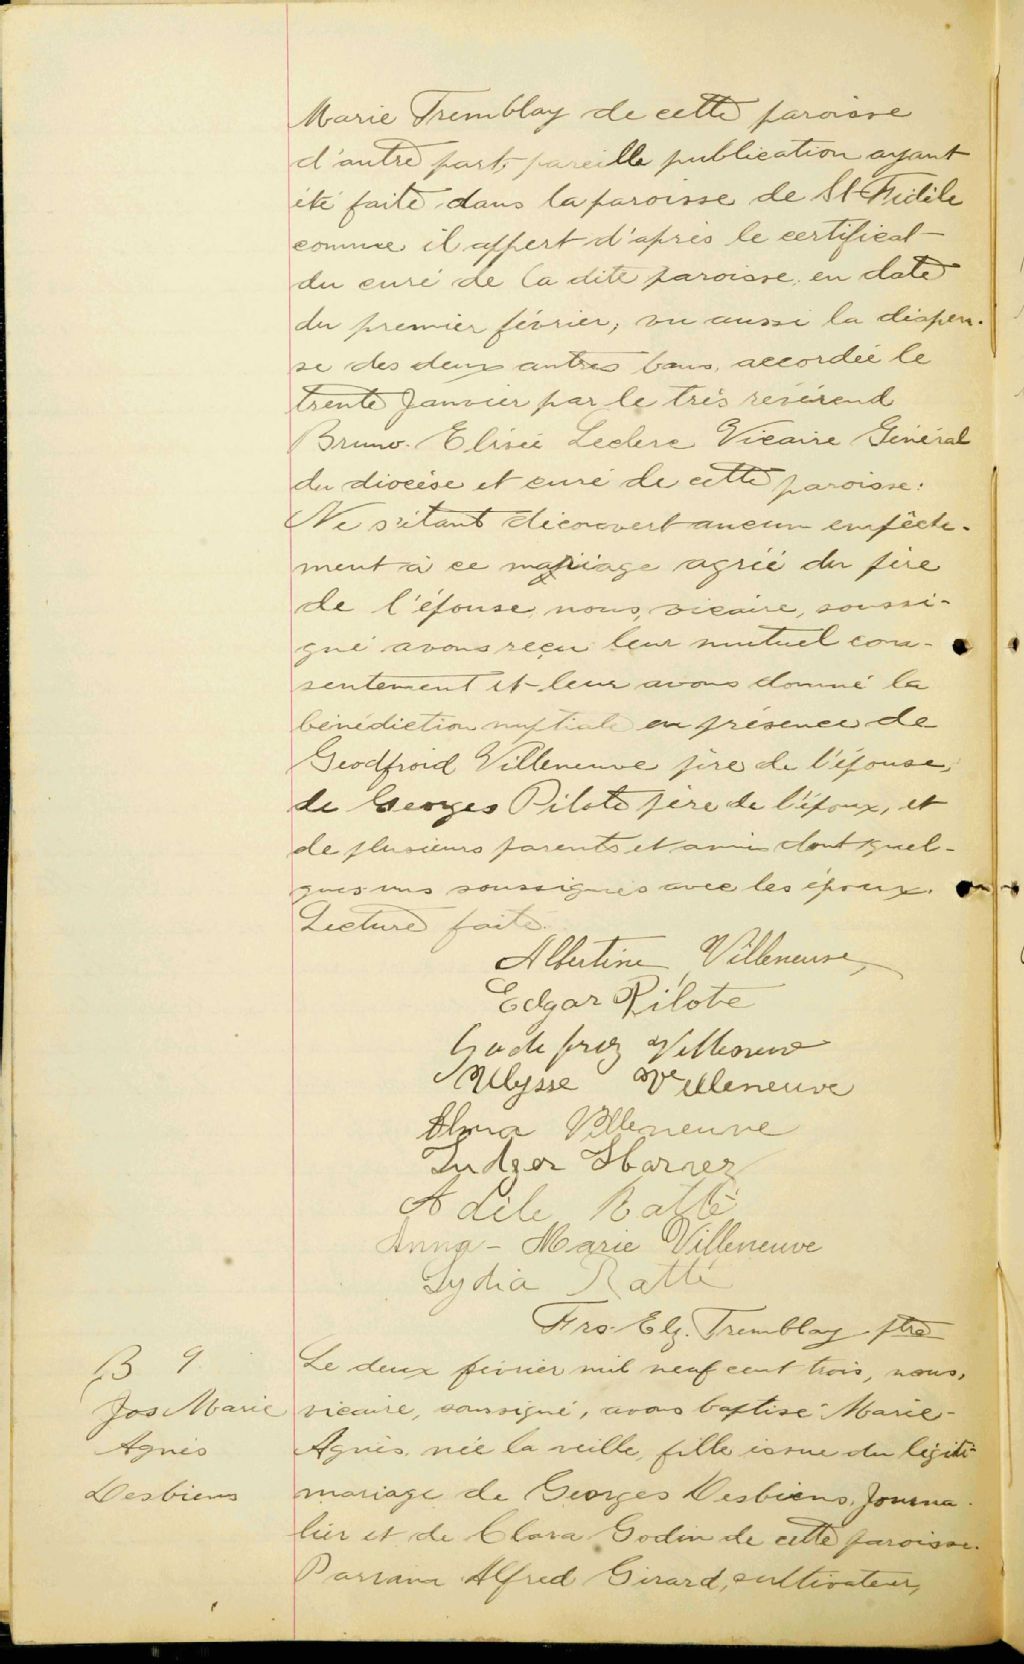 Marie Tremblay de cette paroisse
d'autre part, pareille publication ayant
été faite dans la paroisse de St Fidèle
comme il appert d'après le certificat
du curé de la dite paroisse, en date
du premier février, vu aussi la dispen-
se des deux autres bans, accordée le
trente Janvier par le très révérend
Bruno-Elisée Leclerc Vicaire Général
du diocèse et curé de cette paroisse:
Ne s'étant découvert aucun empêche-
ment à ce mariage agréé du père
de l'épouse, nous, vicaire, soussi-
gné avons reçu leur mutuel con-
sentement et leur avons donné la
bénédiction nuptiale en présence de
Geodfroid Villeneuve père de l'épouse,
de Georges Pilote père de l'époux, et
de plusieurs parents et amis dont quel-
ques uns soussignés avec les époux.
Lecture faite.
Albertine Villeneuve
Edgar Pilote
Godefroy Villeneuve
Ulysse Villeneuve
Alma Villeneuve
Ludger Harvey
Adèle Ratté
Anna-Marie Villeneuve
Lydia Ratté
Frs-Elz. Tremblay ptre
B 9
Jos Marie
Agnès
Desbiens
Le deux février mil neuf cent trois, nous,
vicaire, soussigné, avons baptisé Marie-
Agnès, née la veille, fille issue du légiti-
mariage de Georges Desbiens, Journa-
lier et de Clara Godin de cette paroisse.
Parrain Alfred Girard, cultivateur,